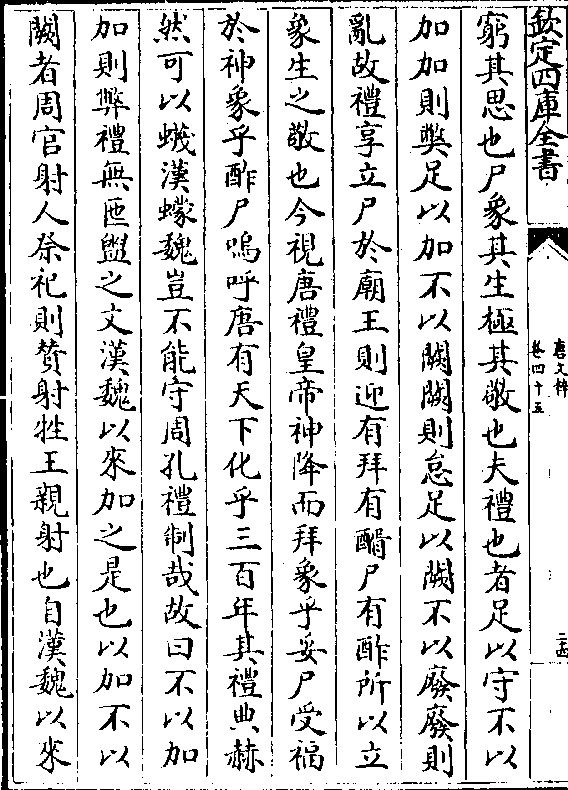 欽定四庫全書
唐文粹
卷四十五
窮其思也尸象其生極其敬也夫禮也者足以守不以
加加則弊足以加不以闕闕則怠足以闕不以廢廢則
亂故禮享立尸於廟王則迎有拜有酳尸有酢所以立
象生之敬也今視唐禮皇帝神降而拜象乎妥尸受福
於神象乎酢尸嗚呼唐有天下化乎三百年其禮典赫
然可以蟣漢蠓魏豈不能守周孔禮制哉故曰不以加
加則弊禮無匜盥之文漢魏以來加之是也以加不以
闕者周官射人祭祀則賛射牲王親射也自漢魏以來